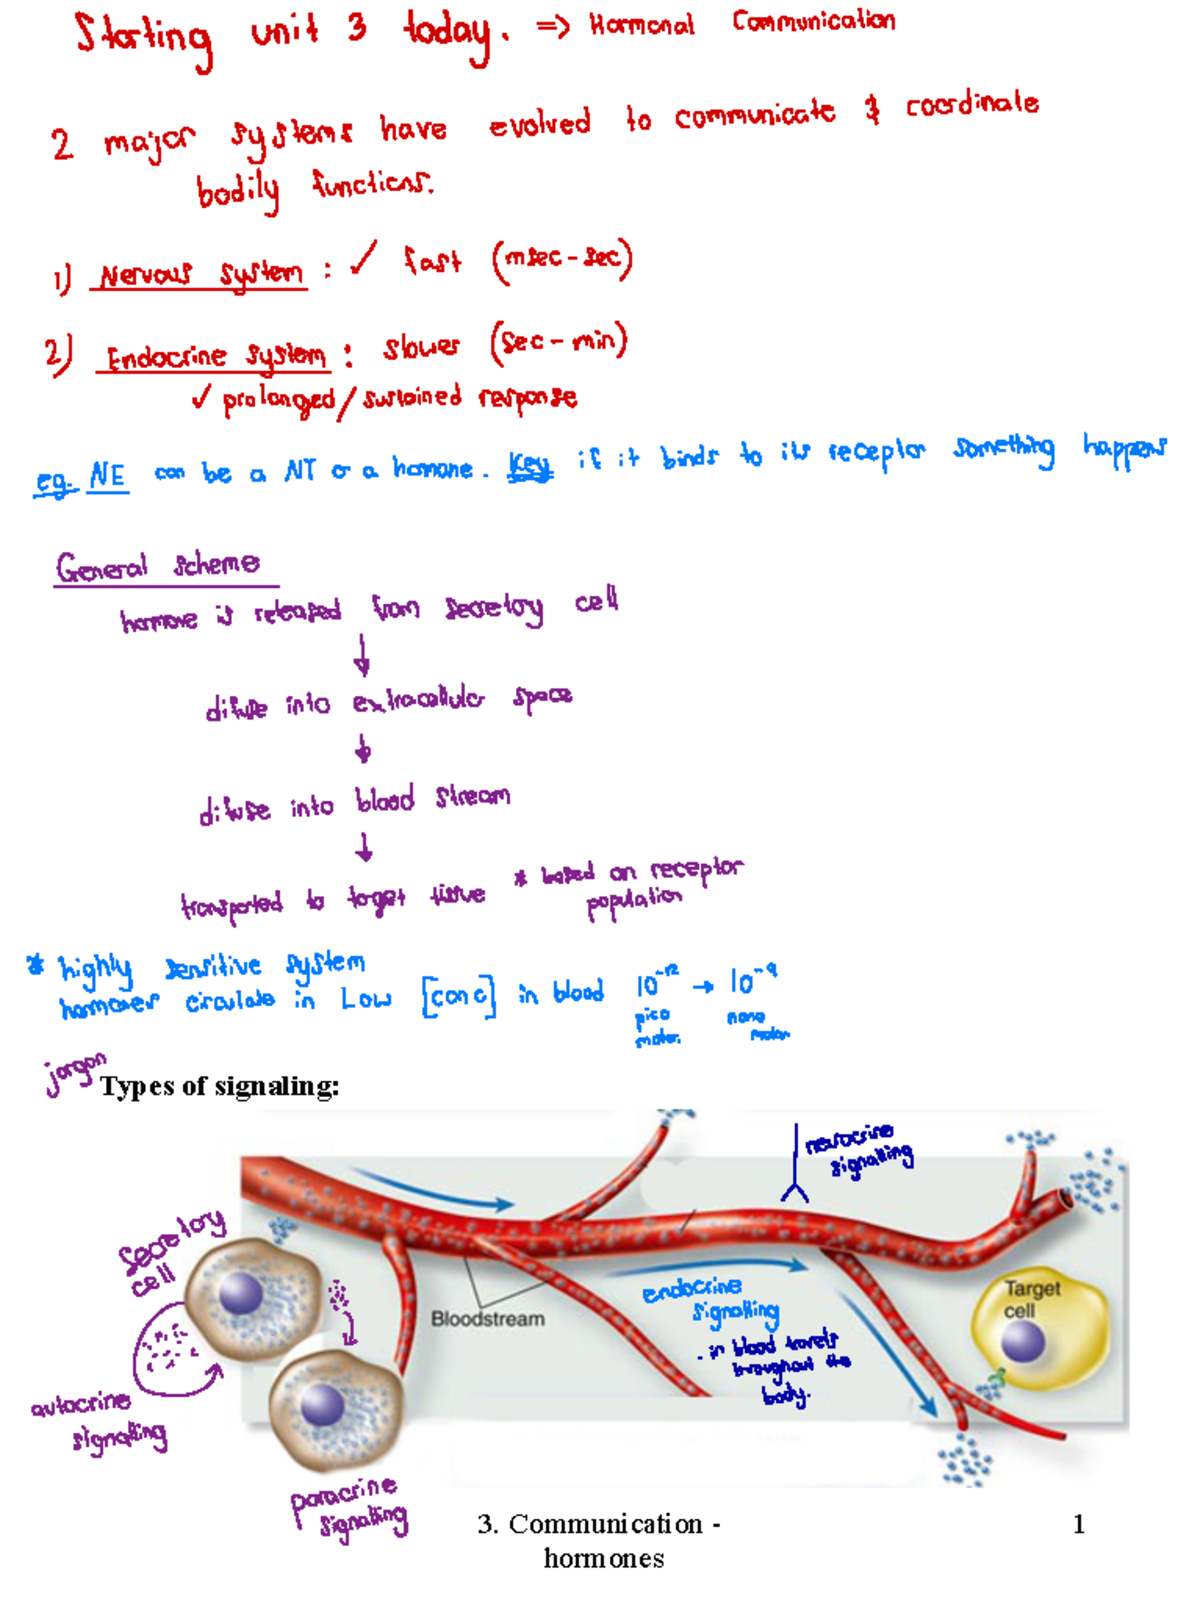 Starting unit 3 today. => Hormonal Communication
2 major systems have evolved to communicate & coordinate
bodily functions.
1) Nervous system : ✓ fast (msec-sec)
2) Endocrine system : slower (sec-min)
✓ prolonged/sustained response
eg. NE can be a NT or a hormone. Key if it binds to its receptor something happens
General scheme
hormone is released from secretory cell
↓
difuse into extracellular space
↓
difuse into blood stream
↓
transported to target tissue * based on receptor
population
* highly sensitive system
hormones circulate in Low [conc] in blood 10⁻¹² → 10⁻⁹
pico nano
molar. molar.
jargon
Types of signaling:
neurocrine
signalling
Secretory
cell
Target
cell
endocrine
signalling
Bloodstream
. in blood travels
throughout the
body.
autocrine
signalling
paracrine
signalling
3. Communication -
hormones
1